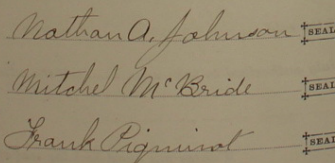 Nathan A. Johnson SEAL
Mitchel McBride SEAL
Frank Piquinot SEAL